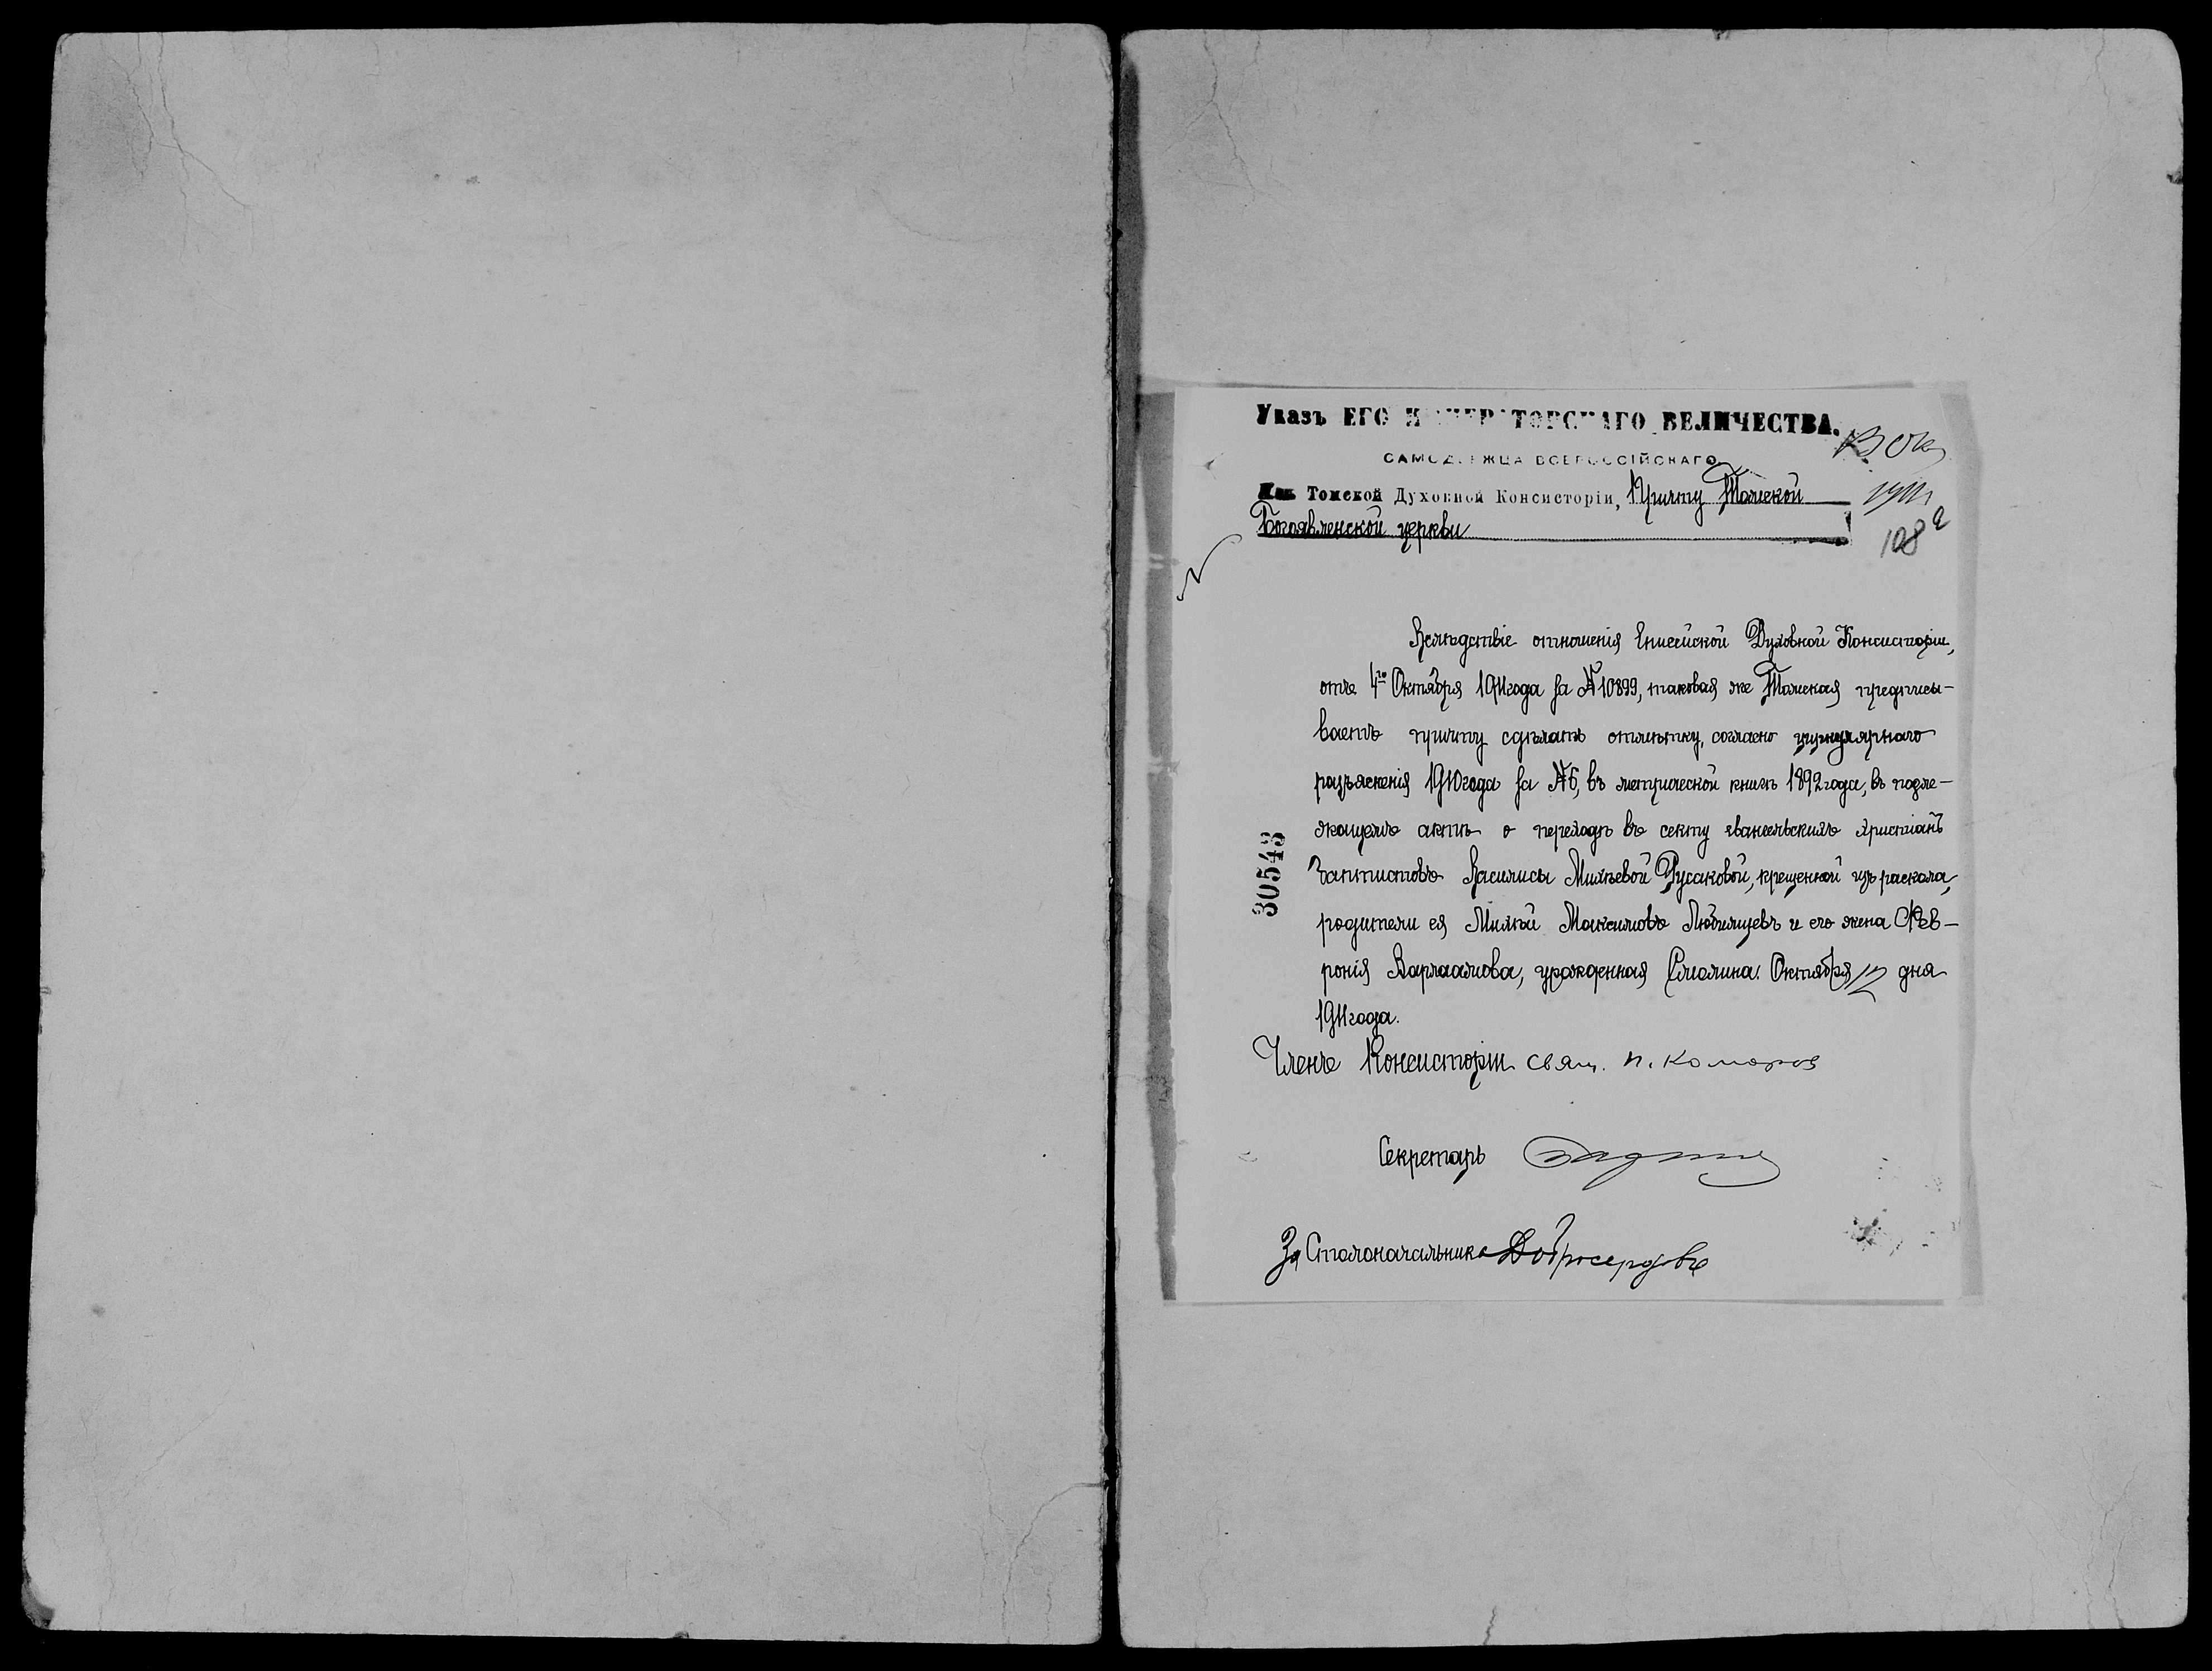 Указъ ЕГО ИМПЕРАТОРСКАГО ВЕЛИЧЕСТВА.
САМОДЕРЖЦА ВСЕРОССІЙСКАГО
Изъ Томской Духовной Консисторіи, Причту Томской
Богоявленской церкви
108
Вслѣдствіе отношенія Енисейской Духовной Консисторіи,
отъ 4го Октября 1911 года за № 10899, таковая же Томская предписы-
ваетъ причту сдѣлать отмѣтку, согласно циркулярнаго
разъясненія 1910 года за № 6, въ метрической книгѣ 1892 года, въ подле-
жащемъ актѣ о переходѣ въ секту евангельскихъ христіанъ
баптистовъ Василисы Михѣевой Русаковой, крещенной изъ раскола,
родители ея Михѣй Максимовъ Любимцевъ и его жена Фев-
ронія Варлаамова, урожденная Смолина. Октября 12 дня
1911 года.
30543
Членъ Консисторіи свящ. П. Комаров
Секретарь
За Столоначальника Добросердовъ